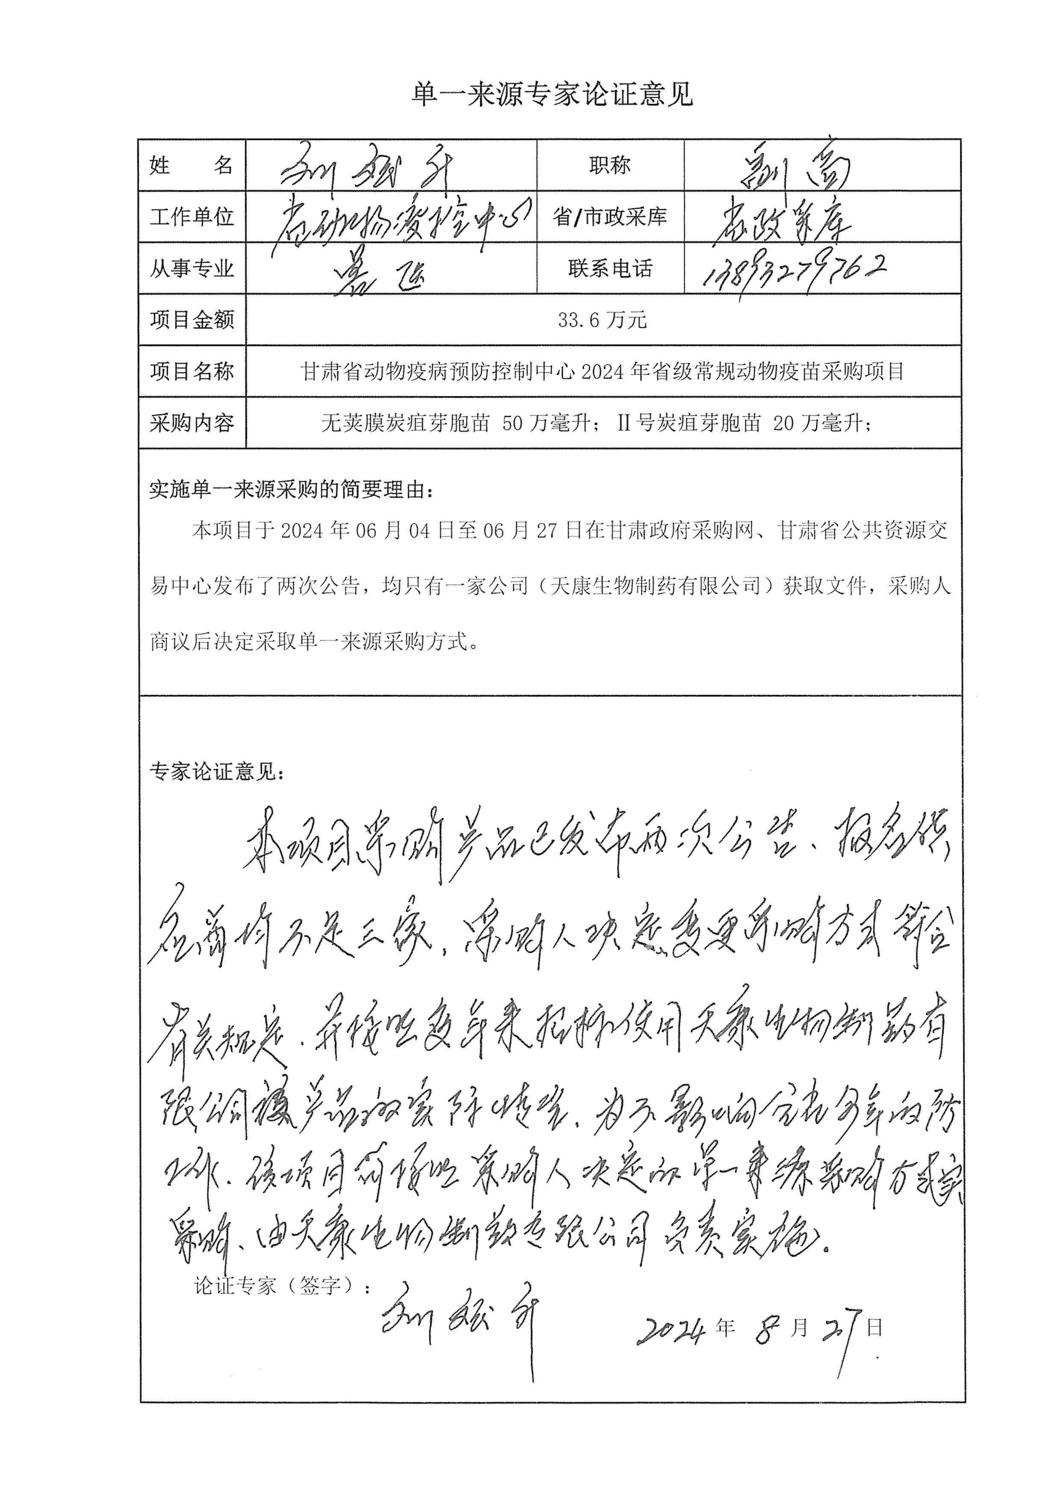 单一来源专家论证意见
姓 名 刘斌升 职称 副高
工作单位 省动物疫控中心 省/市政采库 省政采库
从事专业 兽医 联系电话 13893279762
项目金额 33.6 万元
项目名称 甘肃省动物疫病预防控制中心 2024 年省级常规动物疫苗采购项目
采购内容 无荚膜炭疽芽胞苗 50 万毫升；Ⅱ号炭疽芽胞苗 20 万毫升；
实施单一来源采购的简要理由：
本项目于 2024 年 06 月 04 日至 06 月 27 日在甘肃政府采购网、甘肃省公共资源交
易中心发布了两次公告，均只有一家公司（天康生物制药有限公司）获取文件，采购人
商议后决定采取单一来源采购方式。
专家论证意见：
本项目采购产品已发布两次公告、报名供
应商均不足三家，采购人决定变更采购方式符合
有关规定，并按照多年来招标使用天康生物制药有
限公司该产品的实际情况，为不影响全省今年的防
工作，该项目可按照采购人决定的单一来源采购方式实
采购、由天康生物制药有限公司负责实施。
论证专家（签字）：
刘斌升
2024 年 8 月 27 日